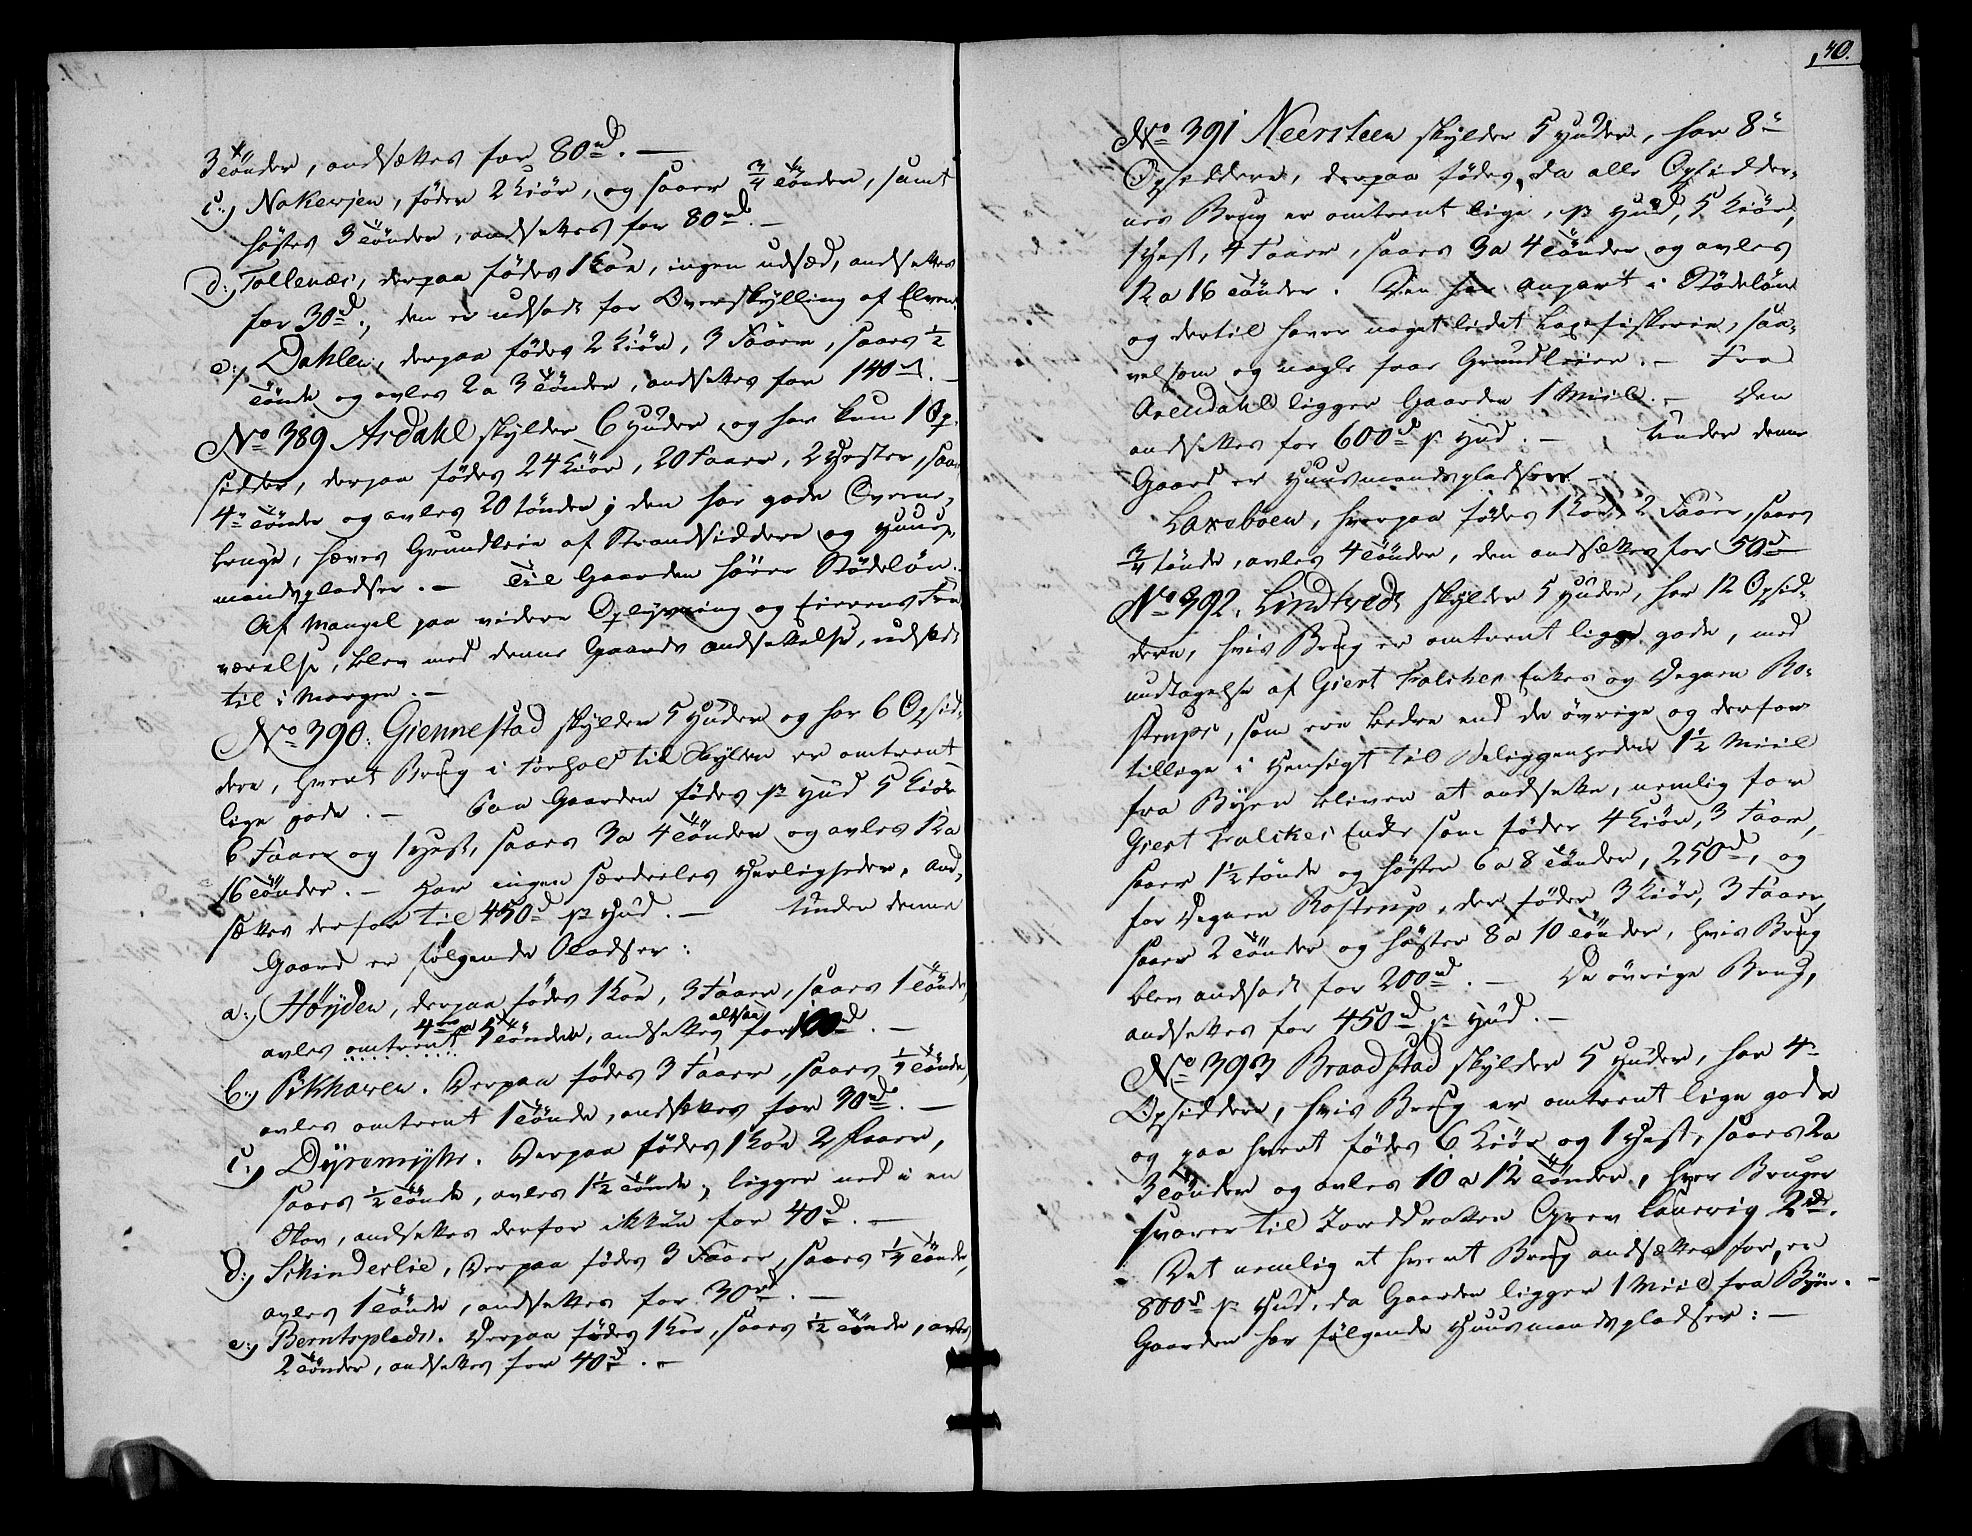 3 Tönder, andsættes for 80rd. —
c:, Nakersen, föder 2 Kiör, og saaer 3/4 Tönder, samt
höstes 3 Tönder, andsettes for 80rd. —
d:, Tollenæs, derpaa födes 1 Koe, ingen udsæd, andsettes
for 30rd., den er udsadt for Overskylling af Elven.
e:, Dahlen, derpaa födes 2 Kiör, 3 Faarer, saaes 1/2
Tönde og avles 2 a 3 Tönder, andsettes for 140rd. —
No 389 Asdahl skylder 6 Huder, og har kun 1 Op-
sidder, derpaa födes 24 Kiör, 20 Faarer, 2 Hester, saaes
4re Tönder og avles 20 Tönder; den har gode
henge, hæves Grundleie af Strandsiddere og Huus-
mandspladser. — Til Gaarden hörer Rödelöen.
Af Mangel paa videre Oplysning og Eierens Fra
værelse, blev med denne Gaards Andsettelse, udsadt
til i Morgen. —
No 390. Giennestad skylder 5 Huder og har 6 Opsid-
dere, hvert Brug i Forhold til Skylden er omtrent
lige gode. — Paa Gaarden födes pr Hud 5 Kiör
6 Faarer og 1 Hest, saaes 3 a 4 Tönder og avles 12 a
16 Tönder. — Har ingen særdeeles Herligheder, and-
settes derfor til 450rd pr Hud. — Under denne
Gaard er fölgende Pladser:
a:, Höyden, derpaa födes 1 Koe, 3 Faarer, saaes 1 Tönde,
avles omtrent 4re a 5 Tönder, andsettes altsaa for 100rd. —
b:, Pikhaven. Derpaa födes 3 Faarer, saaes 1/4 Tönde,
avles omtrent 1 Tönde, andsettes for 30rd. —
c:, Dyremyhr. Derpaa födes 1 Koe 2 Faarer,
saaes 1/2 Tönde, avles 1 1/2 Tönde, ligger ved i en
Skov, andsettes derfor ikkun for 40rd. —
d:, Schinderlie, Derpaa födes 3 Faarer, saaes 1/4 Tönde,
avles 1 Tönde, andsettes for 30rd. —
e:, Berntsplads. Derpaa födes 1 Koe, saaes 1/2 Tönde, avles
2 Tönder, andsettes for 40rd. —
40.
No 391 Neersteen skylder 5 Huder, har 8te
Opsiddere, derpaa födes, da alle Opsidder-
nes Brug er omtrent lige, pr Hud, 5 Kiör,
1 Hest, 4 Faarer, saaes 3 a 4 Tönder og avles
12 a 16 Tönder. Den har Anpart i Rödelöen
og dertil haver noget lidet Laxefiskerie, saa-
velsom og nogle faae Grundleier. — Fra
Arendahl ligger Gaarden 1 Miil. — Den
andsettes for 600rd pr Hud. — Under denne
Gaard er Huusmandspladsen —
Laxeboen, hvorpaa födes 1 Koe, 2 Faarer, saaes
3/4 Tönde, avles 4 Tönder, den andsettes for 50rd —
No 392. Lindtvedt skylder 5 Huder, har 12 Opsid-
dere, hvis Brug er omtrent lige gode, med
undtagelse af Giert Falches Enkes og Vegnere Ro-
strups, som ere bedre end de övrige og derfor
tillige i Hensigt til Beliggenheden 1 1/2 Miil
fra Byen bliver at andsette, nemlig for
Giert Falches Enke som föder 4 Kiör, 3 Faarer,
saaer 1 1/2 Tönde og höster 6 a 8 Tönder, 250rd, og
for Vegner Rostrup, der föder 3 Kiör, 3 Faarer,
saaer 2 Tönder og höster 8 a 10 Tönder, hvis Brug
blev andsadt for 200rd. — De övrige Brug,
andsettes for 450rd pr Hud. —
No 393 Braadstad skylder 5 Huder, har 4re
Opsiddere, hvis Brug er omtrent lige gode
og paa hvert födes 6 Kiör og 1 Hest, saaes 2 a
3 Tönder og avles 10 a 12 Tönder, hver Bruger
svarer til Jorddrotten Grev Laurvig 2rd.
Det nemlig at hvert Brug andsættes for, er
800rd pr Hud, da Gaarden ligger 1 Miil fra Byen. —
Gaarden har fölgende Huusmandspladser: —